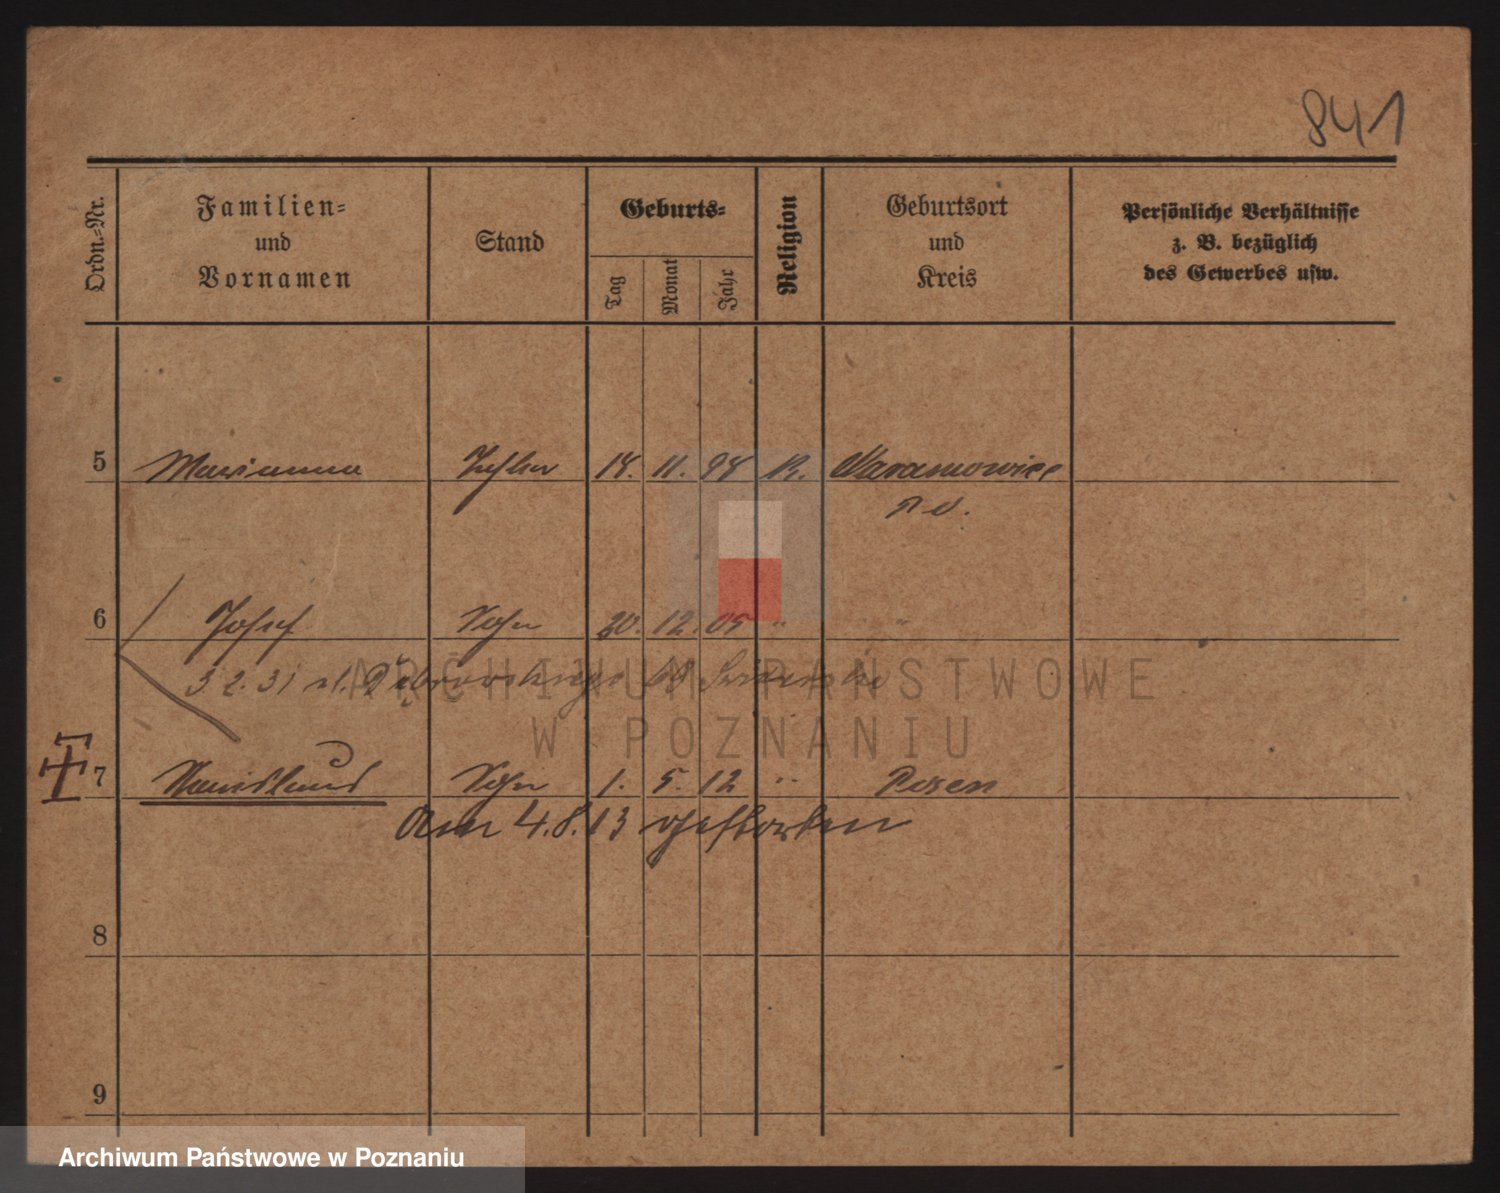 841
Ordn.-Nr.
Familien-
und
Vornamen
Stand
Geburts-
Tag
Monat
Jahr
Religion
Geburtsort
und
Kreis
Persönliche Verhältnisse
z. B. bezüglich
des Gewerbes usw.
5 Marianna Tochter 14. 11. 98 K.
6 Josef Sohn 20. 12. 05 " "
3 2. 31 ul. Dąbrowskiego
7 Stanislaus Sohn 1. 5. 12 " Posen
Am 4.8.13 gestorben
8
9
ARCHIWUM PAŃSTWOWE
W POZNANIU
Archiwum Państwowe w Poznaniu